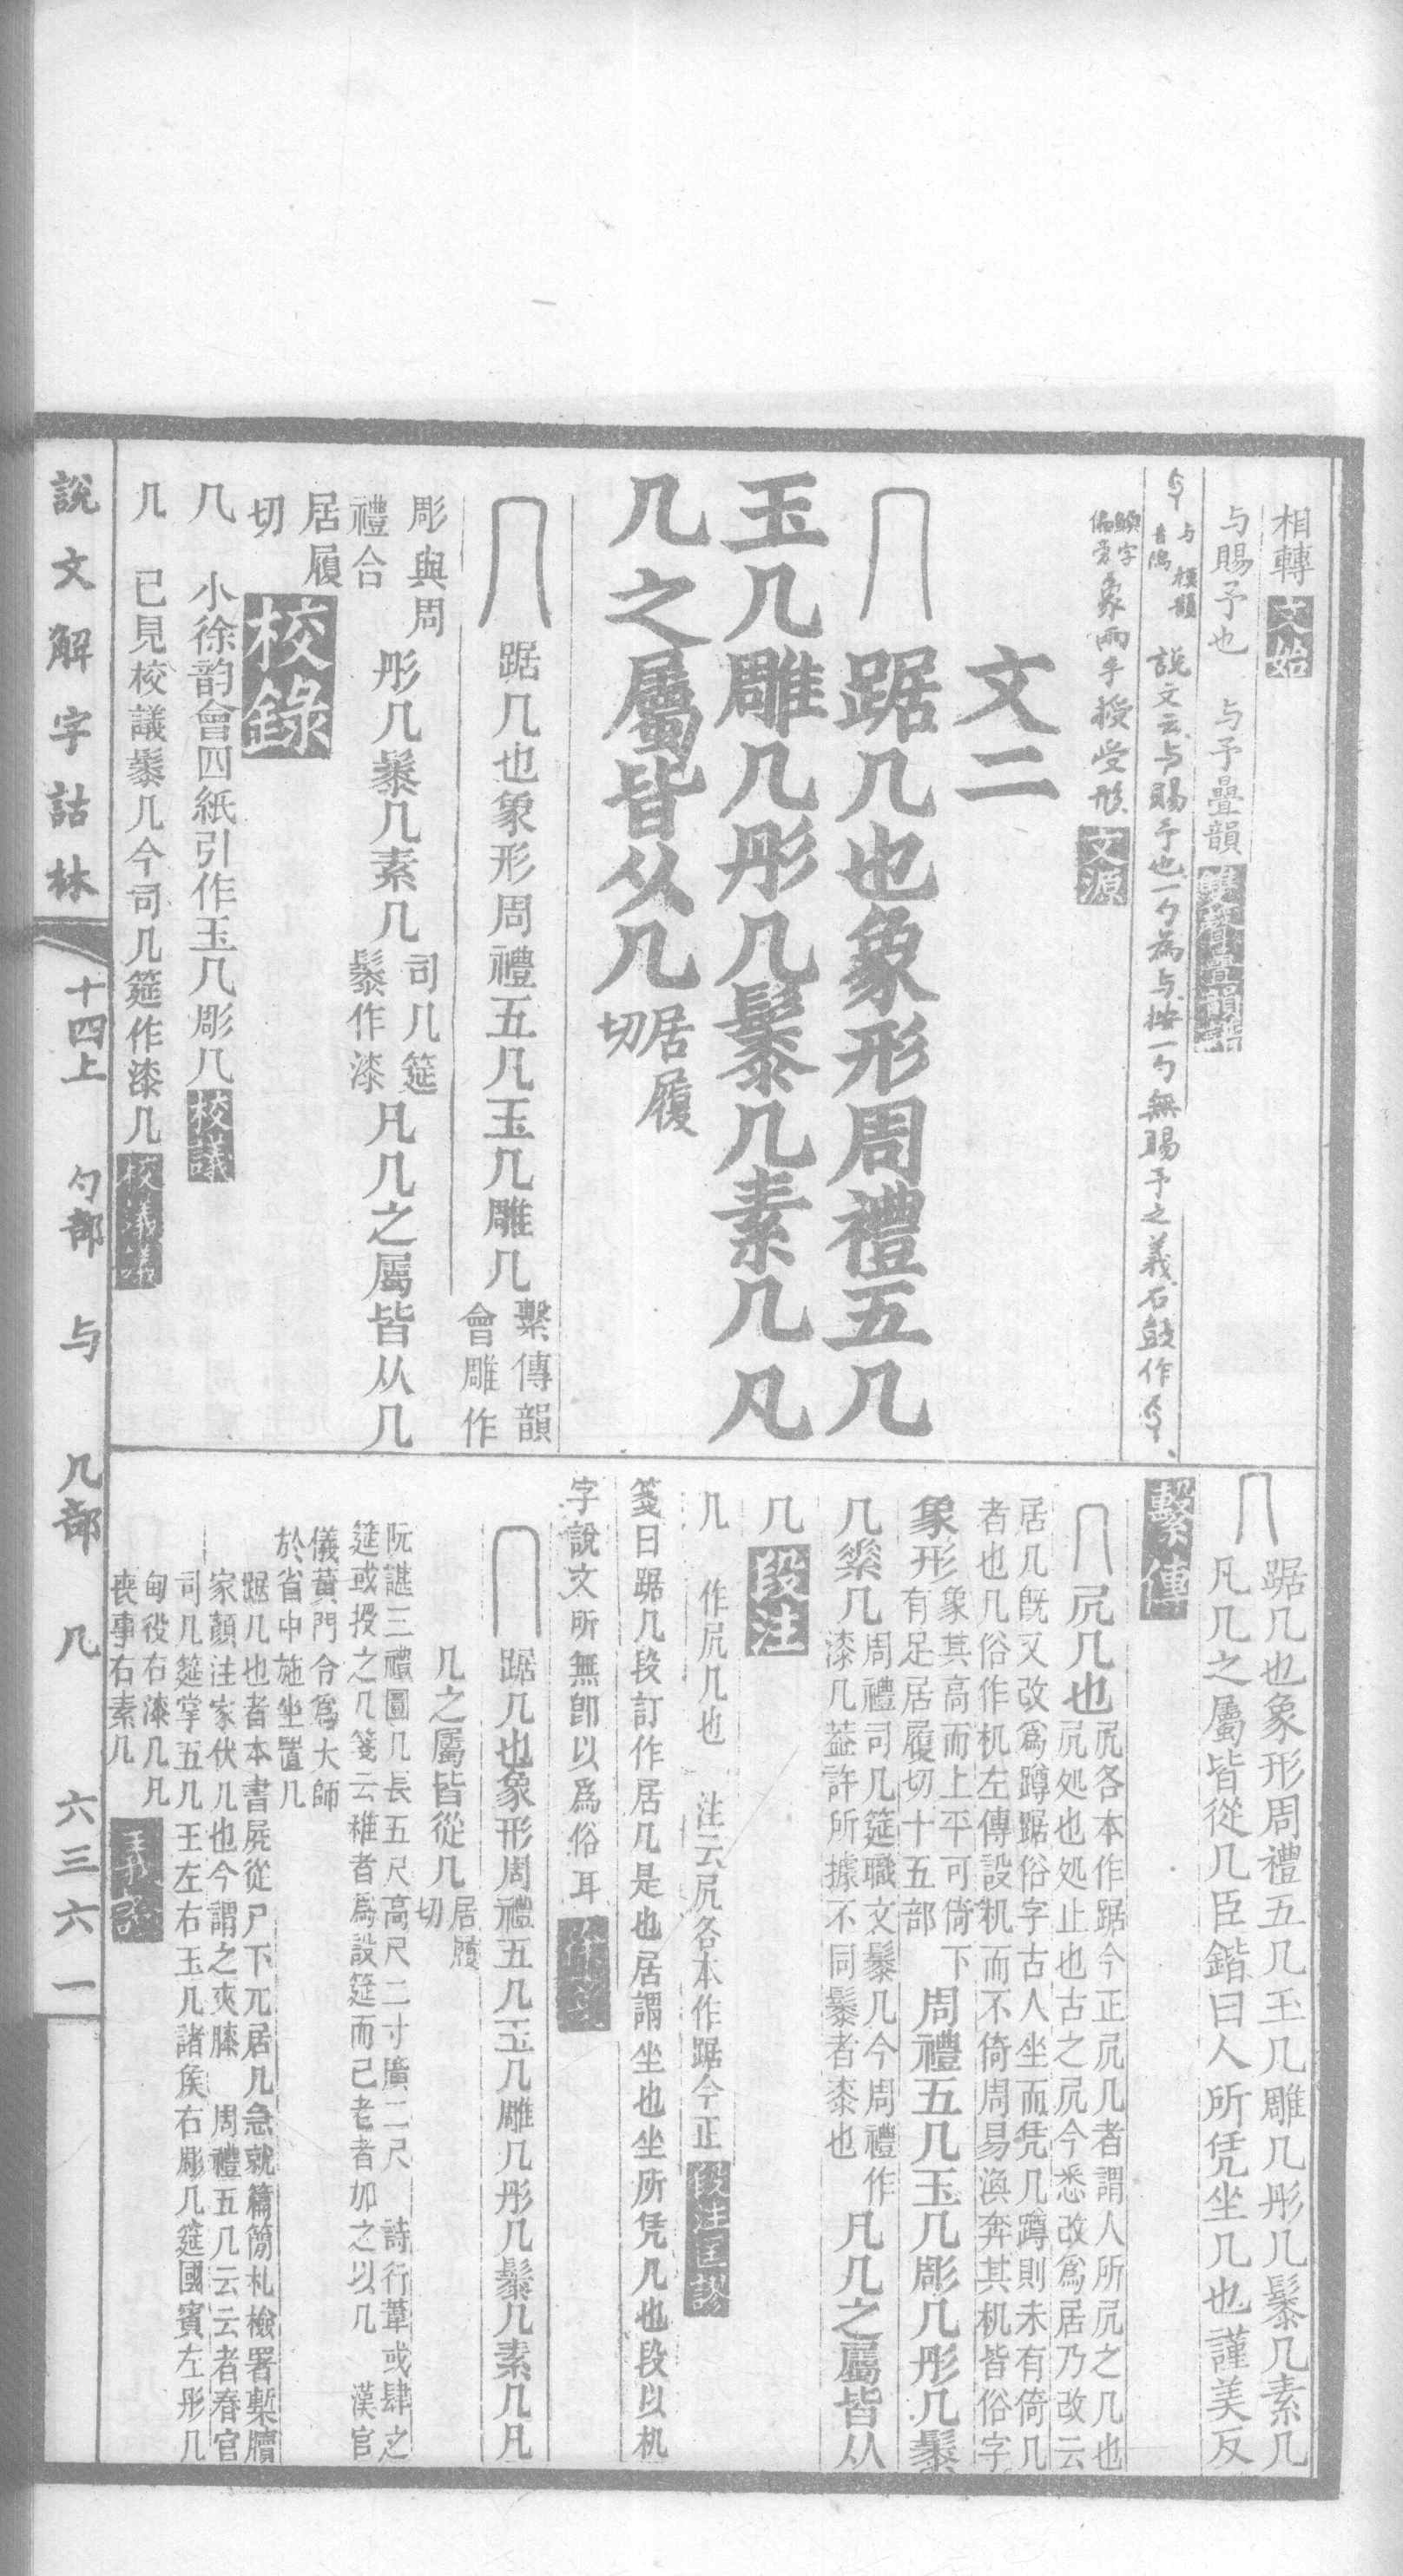 相轉 文始
与賜予也　与予疊韻 雙聲疊韻譜
説文云与賜予也一勺為与按一勺無賜予之義石鼓作
偏旁象兩手授受形 文源
文二
踞几也象形周禮五几
玉几雕几彤几髹几素几凡
几之屬皆从几居履切
踞几也象形周禮五几玉几雕几繫傳韻會雕作
彫與周禮合彤几髹几素几司几筵髹作漆凡几之屬皆从几
居履切 校錄
几　小徐韵會四紙引作玉几彫几 校議
几　已見校議髹几今司几筵作漆几 校議議
踞几也象形周禮五几玉几雕几彤几髹几素几
凡几之屬皆從几臣鍇曰人所凭坐几也謹美反
繫傳
凥几也凥各本作踞今正凥几者謂人所凥之几也
凥処也処止也古之凥今悉改爲居乃改云
居几既又改爲蹲踞俗字古人坐而凭几蹲則未有倚几
者也几俗作机左傳設机而不倚周易渙奔其机皆俗字
象形象其高而上平可倚下有足居履切十五部周禮五几玉几彫几彤几髹
几漆几周禮司几筵職文髹几今周禮作漆几葢許所據不同髹者桼也凡几之屬皆从
几 段注
几　作凥几也　注云凥各本作踞今正 段注匡謬
箋曰踞几段訂作居几是也居謂坐也坐所凭几也段以机
字說文所無卽以爲俗耳
踞几也象形周禮五几玉几雕几彤几髹几素几凡
几之屬皆從几居履切
阮諶三禮圖几長五尺高尺二寸廣二尺　詩行葦或肆之
筵或授之几箋云稚者爲設筵而已老者加之以几　漢官
儀黃門令爲大師
於省中施坐置几
踞几也者本書屍從尸下丌居几急就篇簡札檢署槧牘
家顏注家伏几也今謂之夾膝　周禮五几云云者春官
司几筵掌五几王左右玉几諸矦右彫几筵國賓左彤几
甸役右漆几凡
喪事右素几 義證
說文解字詁林　十四上　勺部　与　几部　几　六三六一